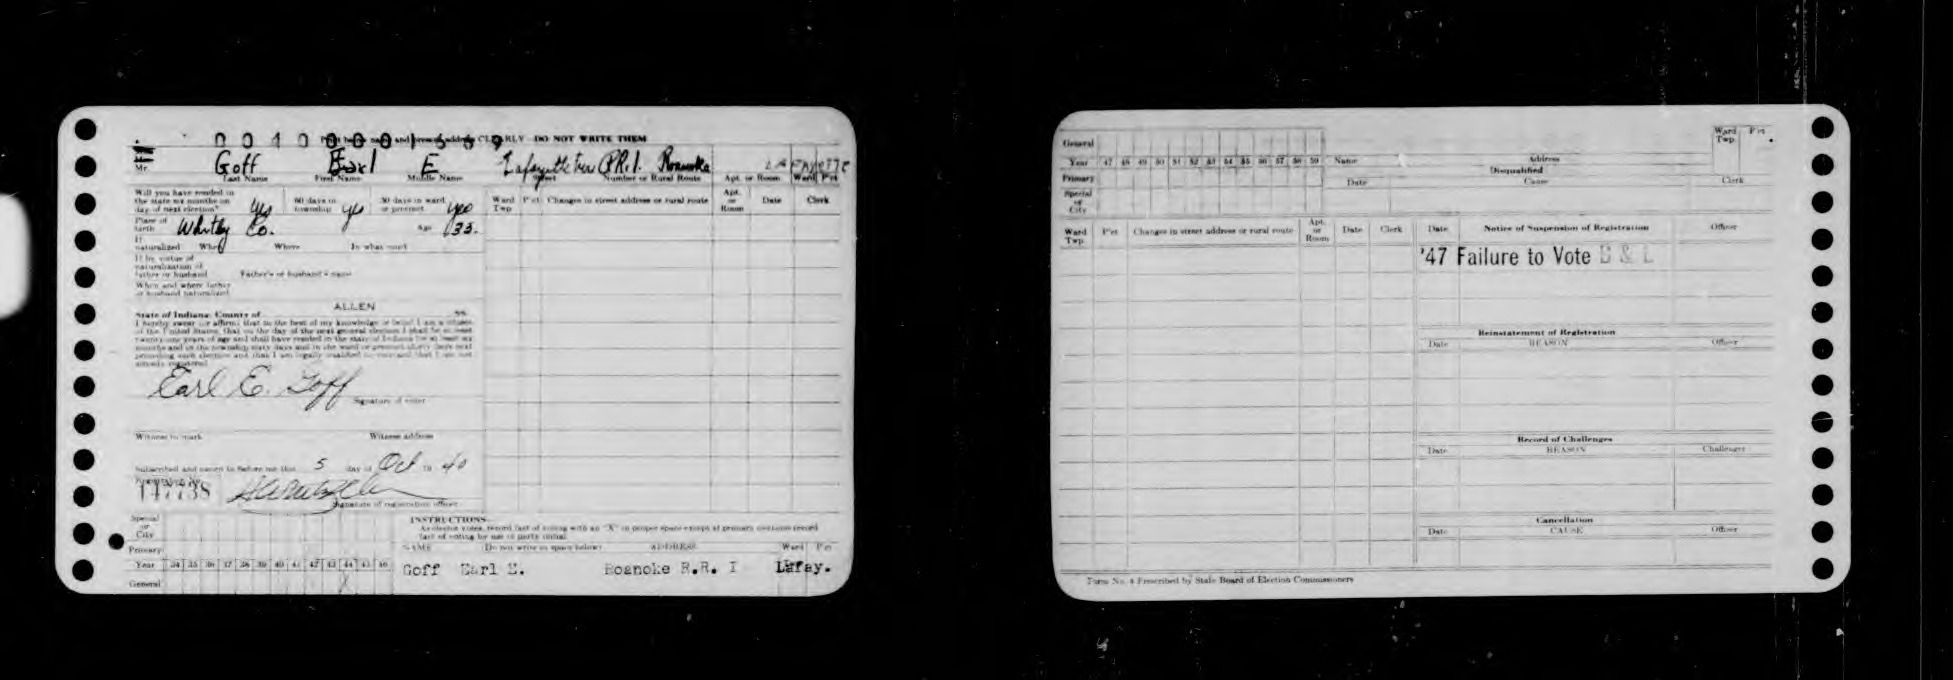 0040000 1509
Print below name and present address CLEARLY - DO NOT WRITE THEM
Mr. Goff Earl E Lafayette Twp RR.1. Roanoke LAFAYETTE
Last Name First Name Middle Name Street Number or Rural Route Apt. or Room Ward Pct
Will you have resided in
the state six months on
day of next election? yes
60 days in
township yes
30 days in ward
or precinct yes
Place of
birth Whitley Co. Age 33.
If
naturalized When Where In what court
If by virtue of
naturalization of
father or husband Father's or husband's name
When and where father
or husband naturalized
State of Indiana, County of ALLEN ss.
I hereby swear or affirm that to the best of my knowledge or belief I am a citizen
of the United States, that on the day of the next general election I shall be at least
twenty-one years of age and shall have resided in the state of Indiana for at least six
months and in the township sixty days and in the ward or precinct thirty days next
preceding such election and that I am legally qualified to vote and that I am not
already registered.
Earl E. Goff
Signature of voter
Witness to mark Witness address
Subscribed and sworn to before me this 5 day of Oct 19 40
Registration No.
147738
Signature of registration officer
Ward
Twp Pct Changes in street address or rural route Apt.
or
Room Date Clerk
Special
or
City
Primary
Year 34 35 36 37 38 39 40 41 42 43 44 45 46
General X
INSTRUCTIONS
As elector votes, record fact of voting with an "X" in proper space except at primary elections record
fact of voting by use of party initial
NAME Do not write in space below ADDRESS Ward Pct
Goff Earl E. Roanoke R.R. I Lafay.
General
Year 47 48 49 50 51 52 53 54 55 56 57 58 59
Primary
Special
or
City
Name Address
Ward
Twp. Pct
Disqualified
Date Cause Clerk
Ward
Twp. Pct Changes in street address or rural route Apt.
or
Room Date Clerk
Date Notice of Suspension of Registration Officer
'47 Failure to Vote B & L
Reinstatement of Registration
Date REASON Officer
Record of Challenges
Date REASON Challenger
Cancellation
Date CAUSE Officer
Form No. 4 Prescribed by State Board of Election Commissioners